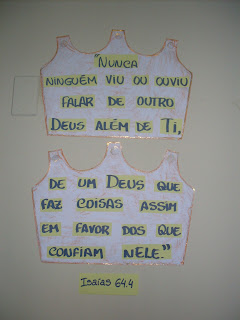 "Nunca
ninguém viu ou ouviu
falar de outro
Deus além de Ti,
de um Deus que
faz coisas assim
em favor dos que
confiam nEle."
Isaías 64.4